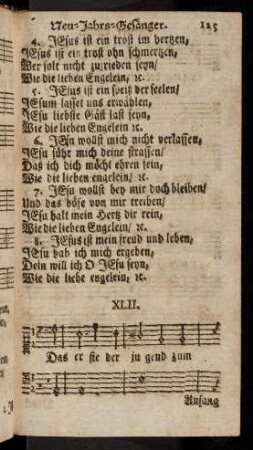 Neu-Jahrs-Gesänger. 125
4. JEsus ist ein trost im hertzen,
JEsus ist ein trost ohn schmertzen,
Wer solt nicht zufrieden seyn/
Wie die lieben Engelein, ꝛc.
5. JEsus ist ein speiß der seelen/
JEsum lasset uns erwählen,
JEsu liebste Gäst last seyn,
Wie die lieben Engelein ꝛc.
6. JEsu wollst mich nicht verlassen,
JEsu führ mich deine strassen/
Daß ich dich möcht ehren fein,
Wie die lieben engelein/ ꝛc.
7. JEsu wollst bey mir doch bleiben/
Und das böse von mir treiben/
JEsu halt mein Hertz dir rein,
Wie die lieben Engelein/ ꝛc.
8. JEsus ist mein freud und leben,
JEsu hab ich mich ergeben,
Dein will ich O JEsu seyn,
Wie die liebe engelein, ꝛc.
XLII.
Das er ste der ju gend zum
Anfang